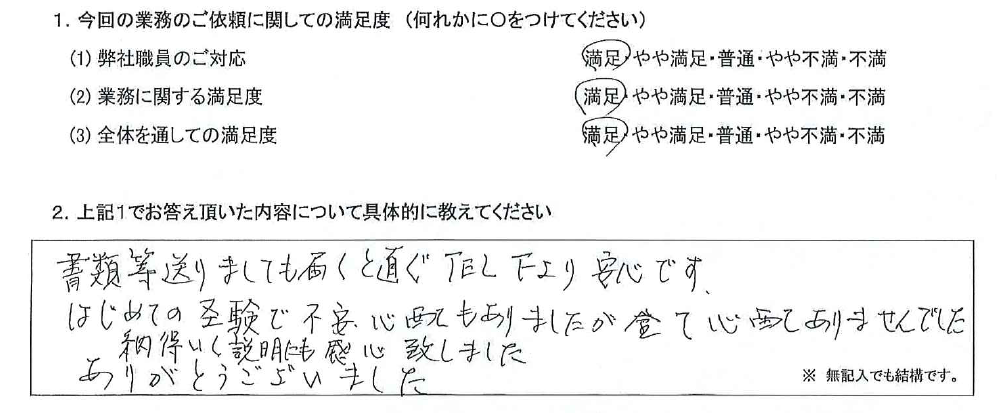 1. 今回の業務のご依頼に関しての満足度 (何れかに〇をつけてください)
(1) 弊社職員のご対応 満足・やや満足・普通・やや不満・不満
(2) 業務に関する満足度 満足・やや満足・普通・やや不満・不満
(3) 全体を通しての満足度 満足・やや満足・普通・やや不満・不満
2. 上記1でお答え頂いた内容について具体的に教えてください
書類等送りましても届くと直ぐTEL下より安心です、
はじめての経験で不安、心配もありましたが全て心配ありませんでした
納得いく説明にも感心致しました
ありがとうございました
※ 無記入でも結構です。